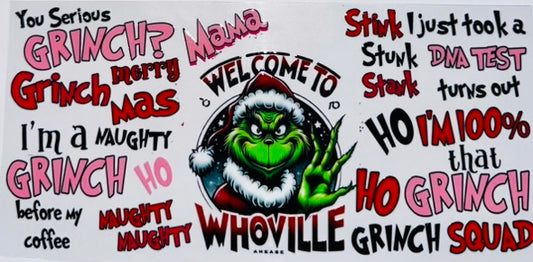 You Serious
GRINCH?
Mama
Grinch merry
Mas
I'm a NAUGHTY
GRINCH HO
before My
coffee
NAUGHTY
NAUGHTY
WELCOME TO
WHOVILLE
Stink
Stunk
Stank
I just took a
DNA TEST
turns out
HO I'M 100%
that
HO GRINCH
GRINCH SQUAD